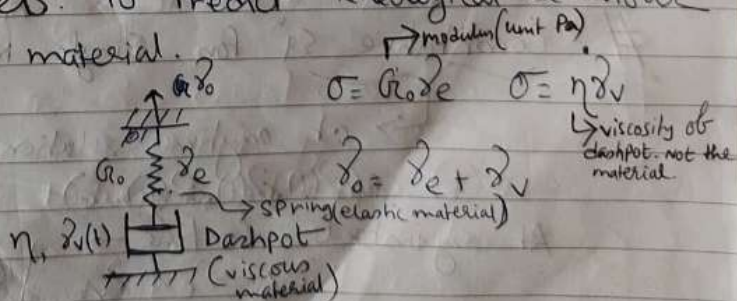 material.
→modulus (unit Pa)
σ = G₀γe σ = ηγ̇v
↳viscosity of
dashpot. not the
material.
γ₀
G₀ γe
γ₀ = γe + γv
→spring (elastic material)
η, γv(t) Dashpot
(viscous
material)